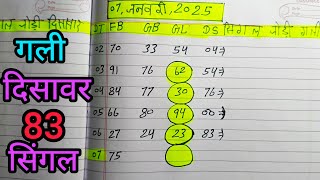 07, जनवरी, 2025
DT FB GB GL DS सिंगल जोड़ी गली
02 70 33 54 04→
03 91 76 62 54→
04 84 77 30 76→
05 66 80 94 00→
06 27 24 23 83→
07 75
गली
दिसावर
83
सिंगल